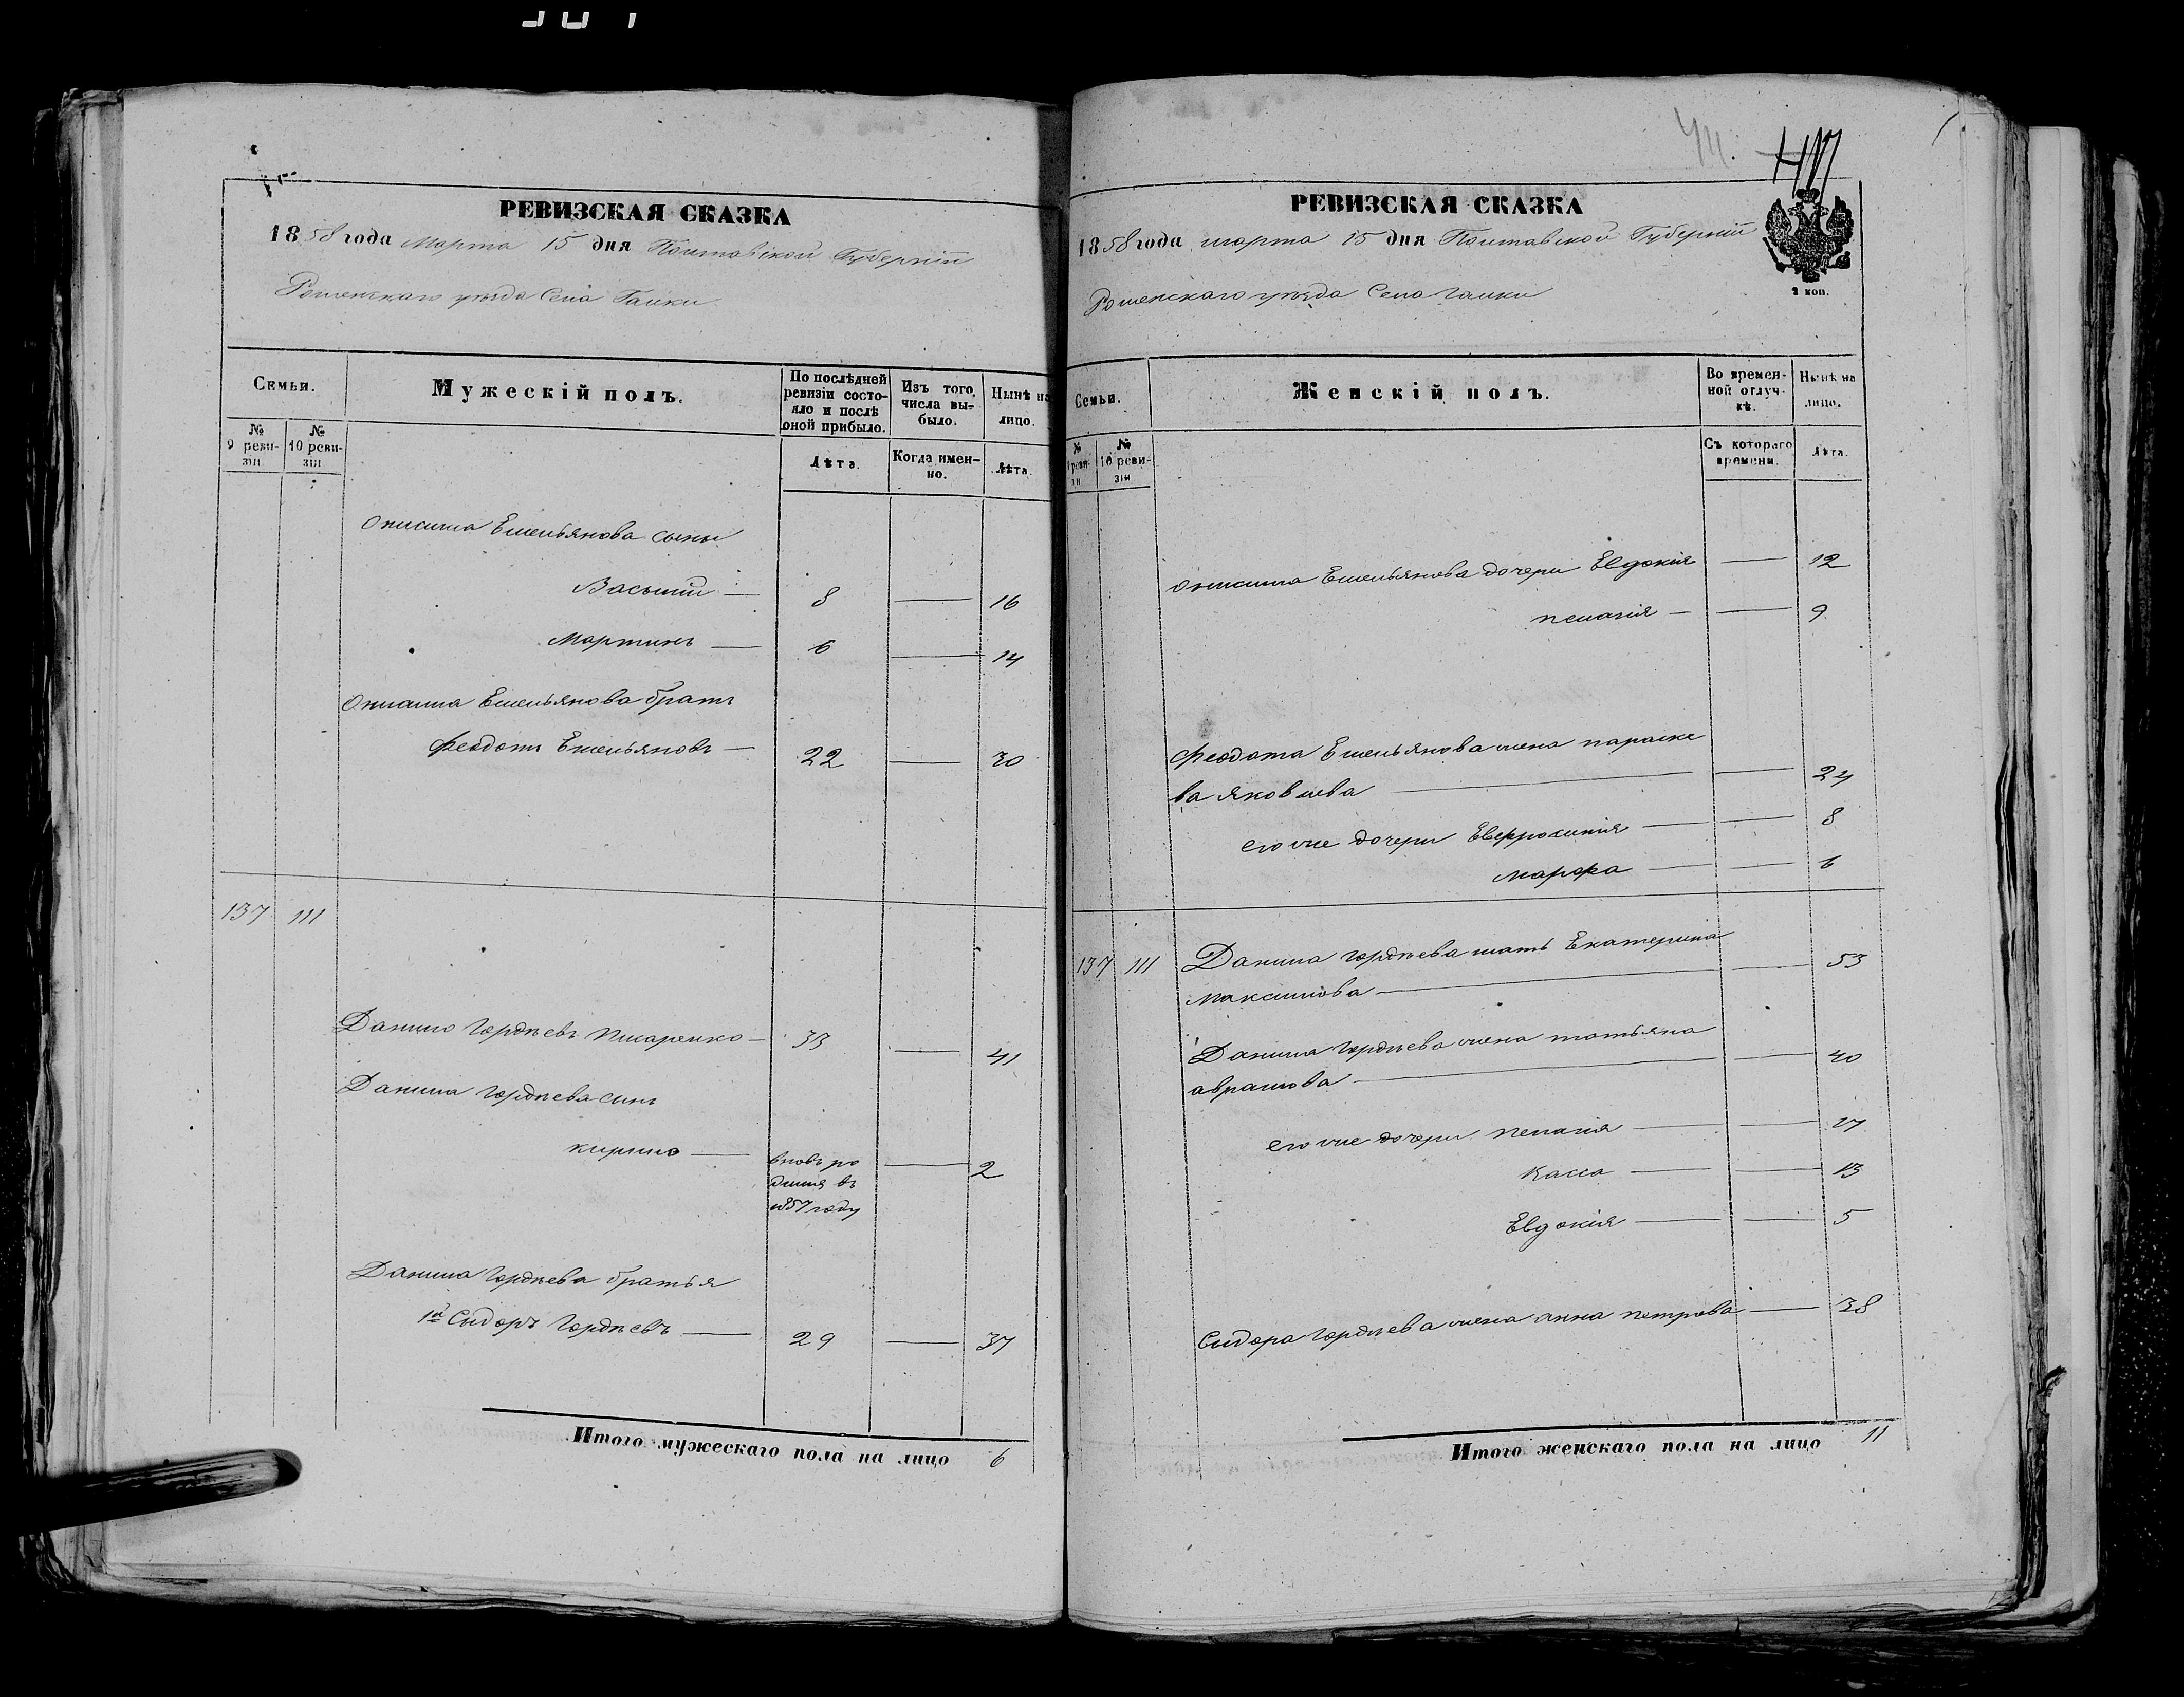 РЕВИЗСКАЯ СКАЗКА
1858 года Марта 15 дня Полтавской Губерніи
Роменскаго уѣзда Села Галки
Семьи.
Мужескій полъ.
По послѣдней ревизіи состояло и послѣ оной прибыло.
Изъ того числа выбыло.
Нынѣ на лицо.
№ 9 ревизіи
№ 10 ревизіи
Лѣта.
Когда именно.
Лѣта.
Онисима Емельянова сыны
Василій — 8 — 16
Мартинъ — 6 — 14
Онисима Емельянова братъ
Феодотъ Емельяновъ — 22 — 30
137 111
Данило Гордѣевъ Писаренко — 33 — 41
Данила Гордѣева сынъ
Кирило — вновь ро — 2
дился въ
1857 году
Данила Гордѣева братья
1й Сидоръ Гордѣевъ — 29 — 37
Итого мужескаго пола на лицо 6
РЕВИЗСКАЯ СКАЗКА
1858 года марта 15 дня Полтавской Губерніи
2 коп.
Роменскаго уѣзда Села Галки
Семьи.
Женскій полъ.
Во временной отлучкѣ.
Нынѣ на лицо.
№ 9 ревизіи
№ 10 ревизіи
Съ котораго времени.
Лѣта.
Онисима Емельянова дочери Евдокія — 12
Пелагія — — 9
Феодота Емельянова жена Параске
ва Яковлева — — 24
его же дочери Евфросинія — — 8
Марфа — — 6
137 111 Данила Гордѣева мать Екатерина
Максимова — — 53
Данила Гордѣева жена Татьяна
Аврамова — — 40
его же дочери Пелагія — — 17
Васса — — 13
Евдокія — — 5
Сидора Гордѣева жена Анна Петрова — 38
Итого женскаго пола на лицо 11